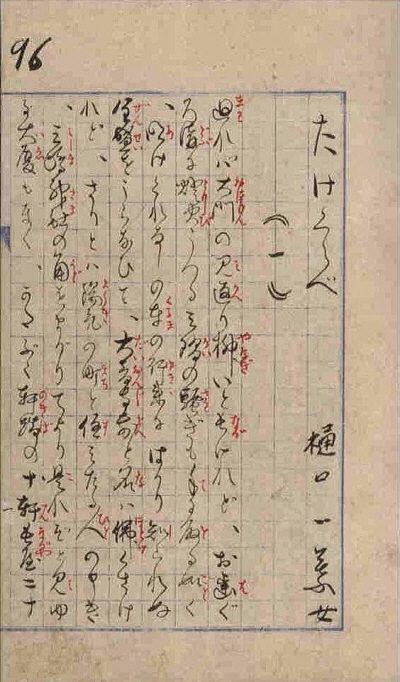 96
たけくらべ
樋口一葉女
(一)
廻れハ大門の見返り柳いと長けれど、お歯ぐ
ろ溝に燈火うつる三階の騒ぎも手に取る如く
、明けくれなしの車の行来にはかり知られぬ
全盛をうらなひて、大音寺前と名ハ佛くさけ
れど、さりとハ陽気の町と住みたる人の申き
、三嶋神社の角をまがりてより是れぞと見ゆ
る大厦もなく、かたぶく軒端の十軒長屋二十